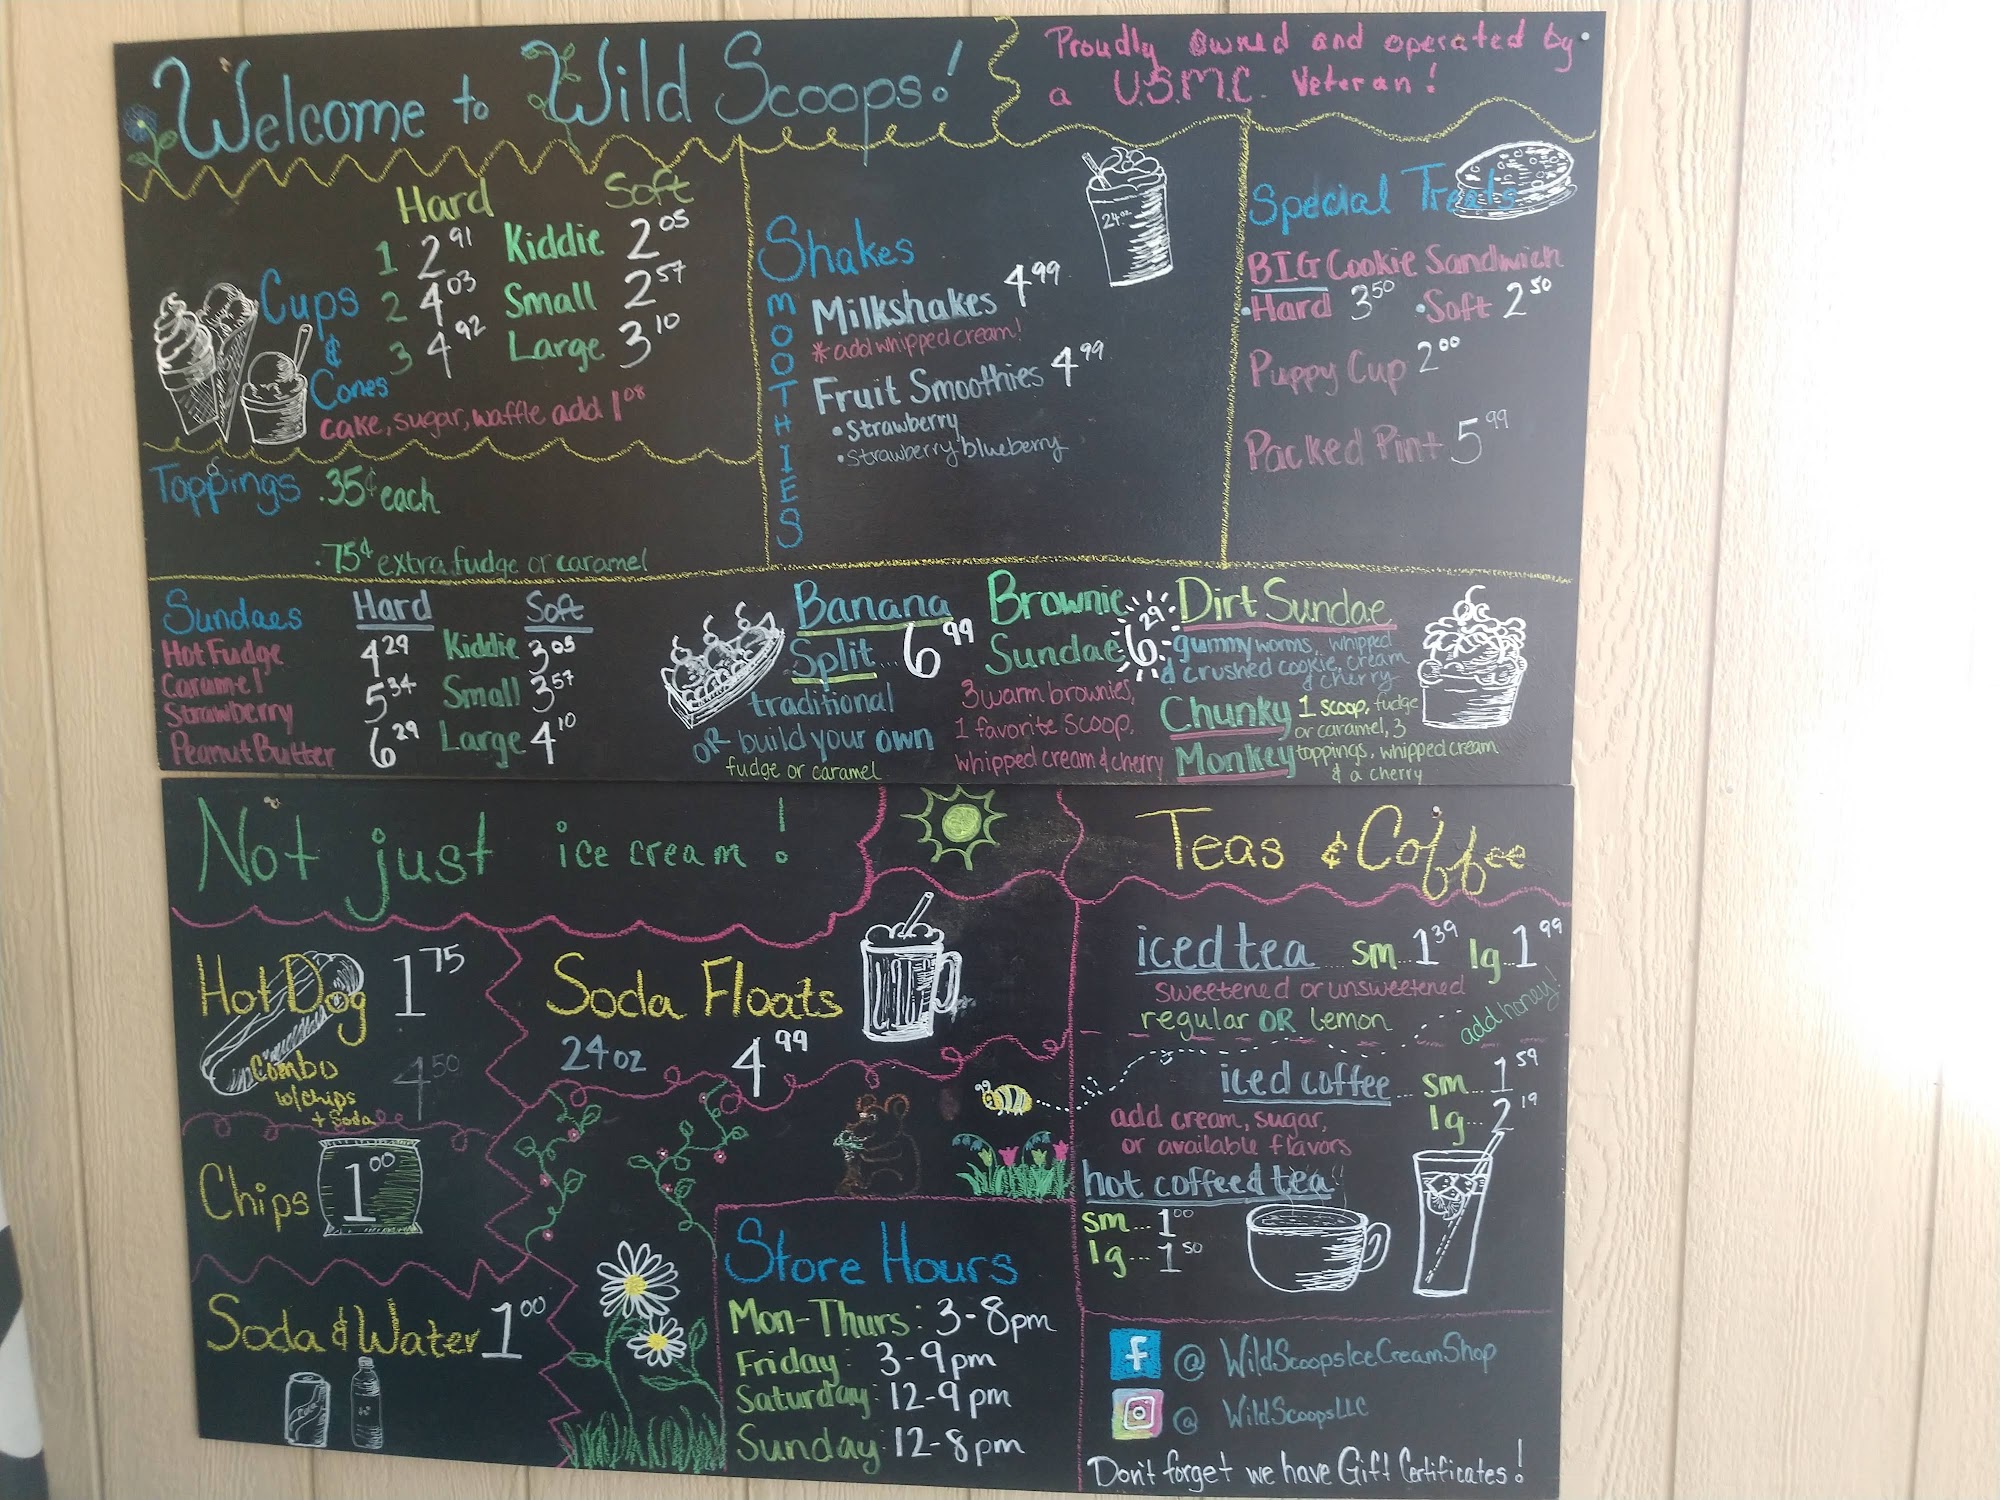 Welcome to Wild Scoops!
Proudly owned and operated by
a U.S.M.C. Veteran!
Hard Soft
Cups
&
Cones
1 2 91 Kiddie 2 05
2 4 03 Small 2 57
3 4 92 Large 3 10
cake, sugar, waffle add 1 08
Toppings .35¢ each
.75¢ extra fudge or caramel
Shakes
SMOOTHIES
24oz
Milkshakes 4 99
* add whipped cream!
Fruit Smoothies 4 99
• Strawberry
• Strawberry blueberry
Special Treats
BIG Cookie Sandwich
• Hard 3 50 • Soft 2 50
Puppy Cup 2 00
Packed Pint 5 99
Sundaes Hard Soft
Hot Fudge 4 29 Kiddie 3 05
Caramel 5 34 Small 3 57
Strawberry
Peanut Butter 6 29 Large 4 10
Banana
Split... 6 99
traditional
OR build your own
fudge or caramel
Brownie
Sundae 6 29
3 warm brownies,
1 favorite scoop,
whipped cream & cherry
Dirt Sundae
gummy worms, whipped
& crushed cookie, cream
& cherry
Chunky 1 scoop, fudge
or caramel, 3
Monkey toppings, whipped cream
& a cherry
Not just ice cream!
Hot Dog 1 75
Combo 4 50
w/chips
+ Soda
Chips 1 00
Soda & Water 1 00
Soda Floats
24oz 4 99
Store Hours
Mon-Thurs: 3-8pm
Friday: 3-9pm
Saturday: 12-9pm
Sunday: 12-8pm
Teas & Coffee
iced tea ... sm...1 39 lg..1 99
sweetened or unsweetened
regular OR lemon
add honey!
iced coffee ... sm... 1 59
lg... 2 19
add cream, sugar,
or available flavors
hot coffee & tea
sm... 1 00
lg... 1 50
f @ WildScoopsIceCreamShop
@ WildScoopsLLC
Don't forget we have Gift Certificates!